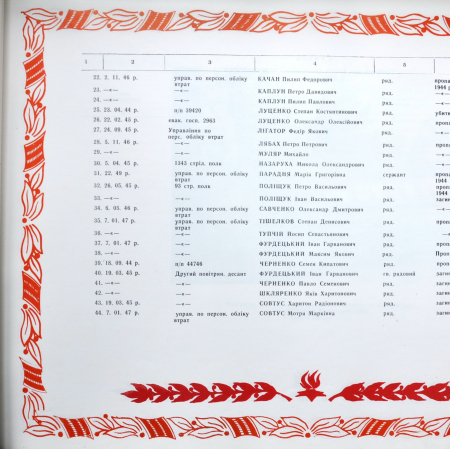 1 2 3 4 5
22. 2. 11. 46 р. управ. по персон. обліку КАЧАН Пилип Федорович ряд. пропа
втрат 1944 р
23. —«— —«— КАПЛУН Петро Давидович ряд.
24. —«— —«— КАПЛУН Пилип Павлович ряд.
25. 23. 04. 44 р. п/п 39420 ЛУЦЕНКО Степан Костянтинович ряд. убити
26. 22. 02. 45 р. евак. госп. 2963 ЛУЦЕНКО Олександр Олексійович ряд. пропа
27. 24. 09. 45 р. Управління по ЛІГАТОР Федір Якович ряд. —«—
перс. обліку втрат
28. 5. 11. 46 р. —«— ЛЯБАХ Петро Петрович ряд.
29. —«— —«— МУЛЯР Михайло ряд.
30. 5. 04. 45 р. 1343 стріл. полк НАЗАРУХА Микола Олександрович ряд.
31. 22. 49 р. управ. по персон. обліку ПАРАДНЯ Марія Григорівна сержант пропа
втрат 1944
32. 26. 05. 45 р. 93 стр. полк ПОЛІЩУК Петро Васильович ряд. пропа
1944
33. —«— —«— ПОЛІЩУК Іван Васильович ряд. заги
34. 6. 05. 46 р. управ. по персон. обліку САВЧЕНКО Олександр Дмитрович ряд.
втрат
35. 7. 01. 47 р. управ. по персон. обліку ТІЩЕЛКОВ Степан Денисович ряд. пропа
втрат
36. —«— —«— ТУПЧІЙ Йосип Севастьянович ряд.
37. 7. 01. 47 р. —«— ФУРДЕЦЬКИЙ Іван Гарванович ряд. пропа
38. —«— —«— ФУРДЕЦЬКИЙ Максим Якович ряд. Проп
39. 18. 09. 44 р. п/п 44786 ЧЕРНЕНКО Семен Кипатович ряд. пропа
40. 19. 03. 45 р. Другий повітрян. десант ФУРДЕЦЬКИЙ Іван Гарванович гв. рядовий заги
41. —«— —«— ЧЕРНЕНКО Павло Семенович ряд. заги
42. —«— —«— ШКЛЯРЕНКО Яків Харитонович ряд. заги
43. 19. 03. 45 р. —«— СОВТУС Харитон Радіонович ряд. заги
44. 7. 01. 47 р. управ. по персон. обліку СОВТУС Мотря Марківна ряд. заги
втрат